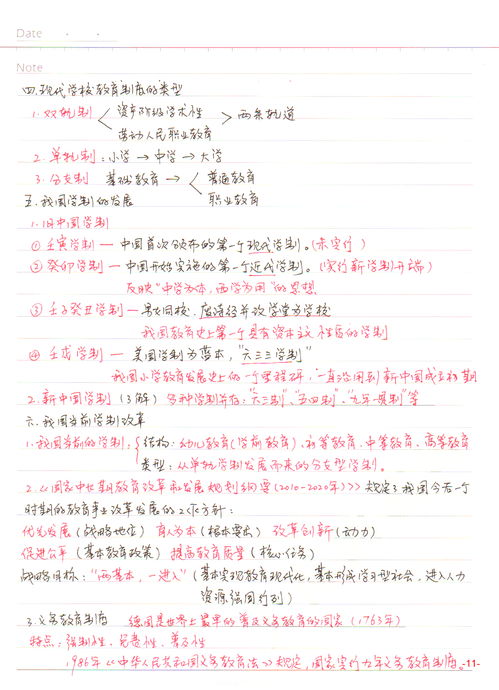 Date
Note
四.现代学校教育制度的类型
1.双轨制 资产阶级学术性 > 两条轨道
劳动人民职业教育
2.单轨制：小学→中学→大学
3.分支制 基础教育→ 普通教育
职业教育
五.我国学制的发展
1.旧中国学制
①壬寅学制—中国首次颁布的第一个现代学制。(未实行)
②癸卯学制—中国开始实施的第一个近代学制。(实行新学制开端)
反映"中学为本，西学为用"的思想
③壬子癸丑学制—男女同校，废读经并改学堂为学校
我国教育史上第一个具有资本主义性质的学制
④壬戌学制—美国学制为蓝本，"六三三学制"
我国小学教育发展史上的一个里程碑，一直沿用到新中国成立初期
2.新中国学制(了解) 多种学制并存："六三制"、"五四制"、"九年一贯制"等
六.我国当前学制改革
1.我国当前的学制：结构：幼儿教育(学前教育)、初等教育、中等教育、高等教育
类型：从单轨学制发展而来的分支型学制。
2.《国家中长期教育改革和发展规划纲要(2010-2020年)》规定了我国今后一个
时期的教育事业改革发展的工作方针：
优先发展(战略地位) 育人为本(根本要求) 改革创新(动力)
促进公平(基本教育政策) 提高教育质量(核心任务)
战略目标："两基本，一进入"(基本实现教育现代化，基本形成学习型社会，进入人力
资源强国行列)
3.义务教育制度 德国是世界上最早的普及义务教育的国家(1763年)
特点：强制性、免费性、普及性
1986年《中华人民共和国义务教育法》规定，国家实行九年义务教育制度。
-11-